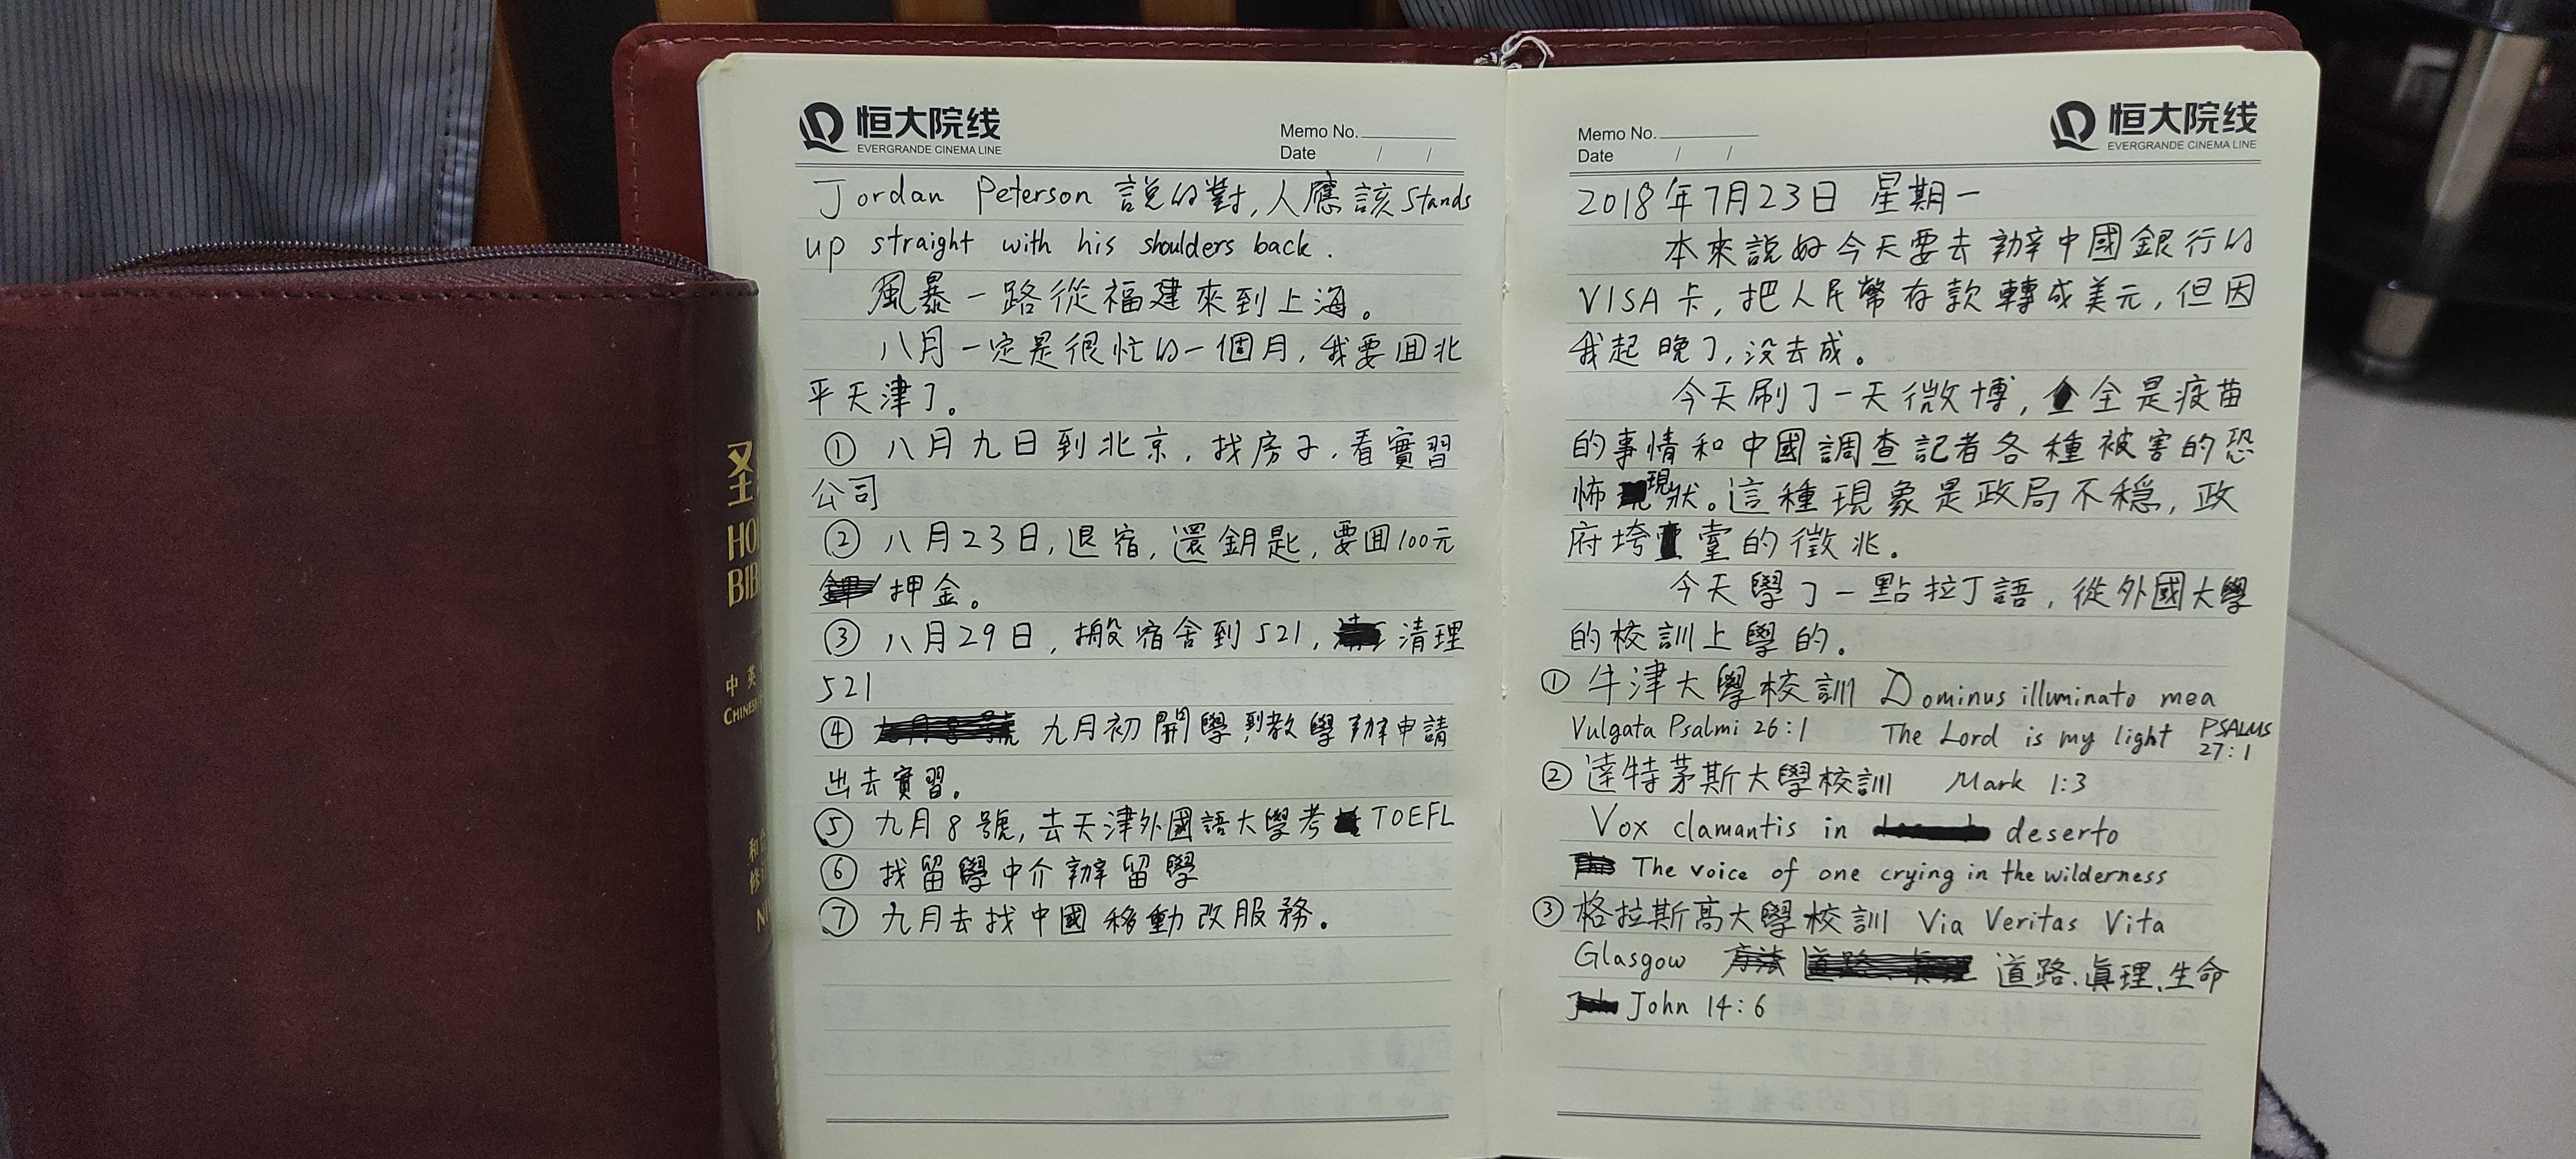 恒大院线
EVERGRANDE CINEMA LINE
Memo No.
Date / /
Jordan Peterson 説的對,人應該 stands
up straight with his shoulders back.
風暴一路從福建來到上海。
八月一定是很忙的一個月,我要回北
平天津了。
① 八月九日到北京,找房子,看實習
公司
② 八月23日,退宿,還鑰匙,要回100元
押金。
③ 八月29日,搬宿舍到521,清理
521
④ 九月8號 九月初開學到教學辦申請
出去實習。
⑤ 九月8號,去天津外國語大學考 TOEFL
⑥ 找留學中介辦留學
⑦ 九月去找中國移動改服務。
Memo No.
Date / /
恒大院线
EVERGRANDE CINEMA LINE
2018年7月23日 星期一
本來説好今天要去辦中國銀行的
VISA卡,把人民幣存款轉成美元,但因
我起晚了,没去成。
今天刷了一天微博,全是疫苗
的事情和中國調查記者各種被害的恐
怖現狀。這種現象是政局不穩,政
府垮臺的徵兆.
今天學了一點拉丁語,從外國大學
的校訓上學的.
① 牛津大學校訓 Dominus illuminato mea
Vulgata Psalmi 26:1 The Lord is my light PSALMS
27:1
② 達特茅斯大學校訓 Mark 1:3
Vox clamantis in deserto
The voice of one crying in the wilderness
③ 格拉斯高大學校訓 Via Veritas Vita
Glasgow 方法 道路.真理.生命
John 14:6
圣
HO
BIB
中英
CHINESE
和合
修
NI